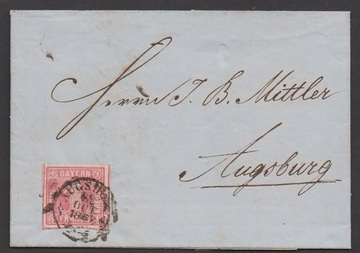 Herrn J. B. Mittler
Augsburg
BAYERN